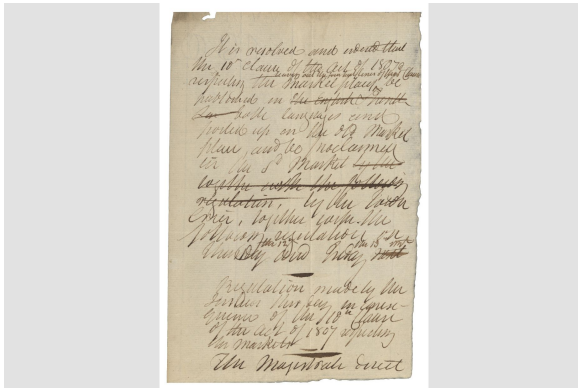 It is resolved and ordered that
the 10th clause of the act of 1807
respecting the market place be
published in the English
both languages and
posted up in the old Market
place, and be proclaimed
in the sd Market by the
together with the following
regulation, by the Town
Crier, together with the
following regulation on
thursday and friday next
Regulation made by the
in conse-
quence of the 10th Clause
of the act of 1807 respecting
the markets
The Magistrate direct